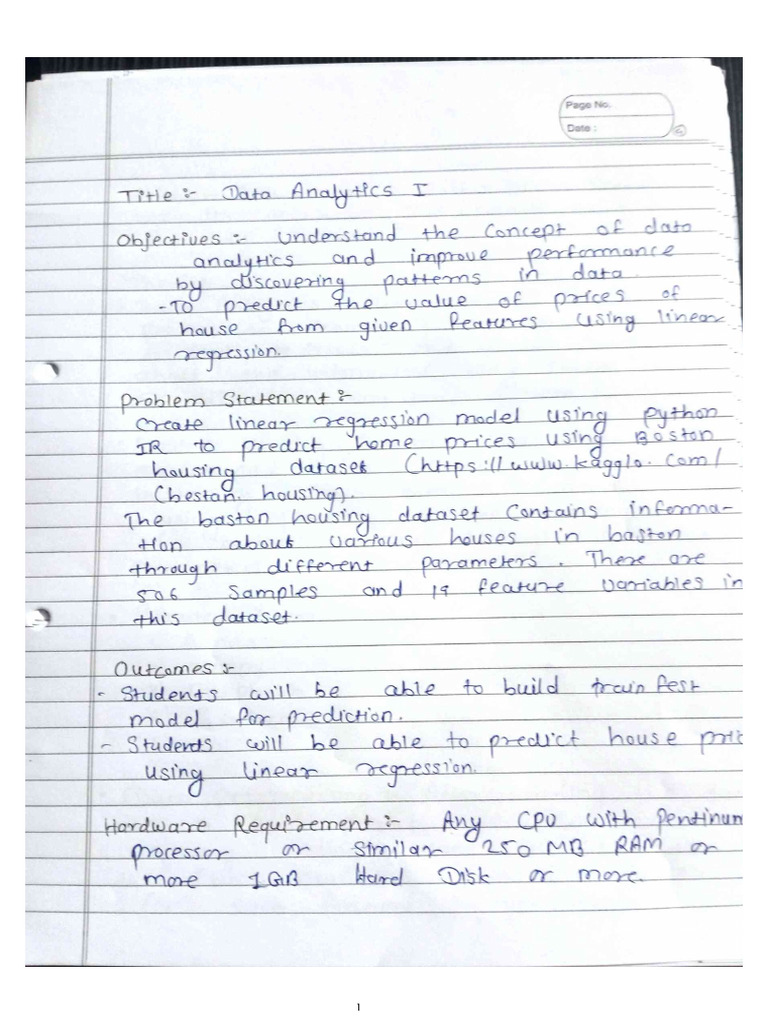 Page No.
Date :
Title :- Data Analytics I
Objectives :- Understand the Concept of data
analytics and improve performance
by discovering patterns in data.
- To predict the value of prices of
house from given features using linear
regression.
Problem Statement :-
Create linear regression model using python
IR to predict home prices using Boston
housing dataset (https://www.kagglo.com/
(bestan. housing).
The baston housing dataset Contains informa-
tion about various houses in baston
through different parameters. There are
506 Samples and 19 feature variables in
this dataset.
Outcomes :-
- Students will be able to build train fest
model for prediction.
- Students will be able to predict house pric
using linear regression.
Hardware Requirement :- Any CPU with Pentinum
processor or Similar 250 MB RAM or
more 1GB Hard Disk or more.
1